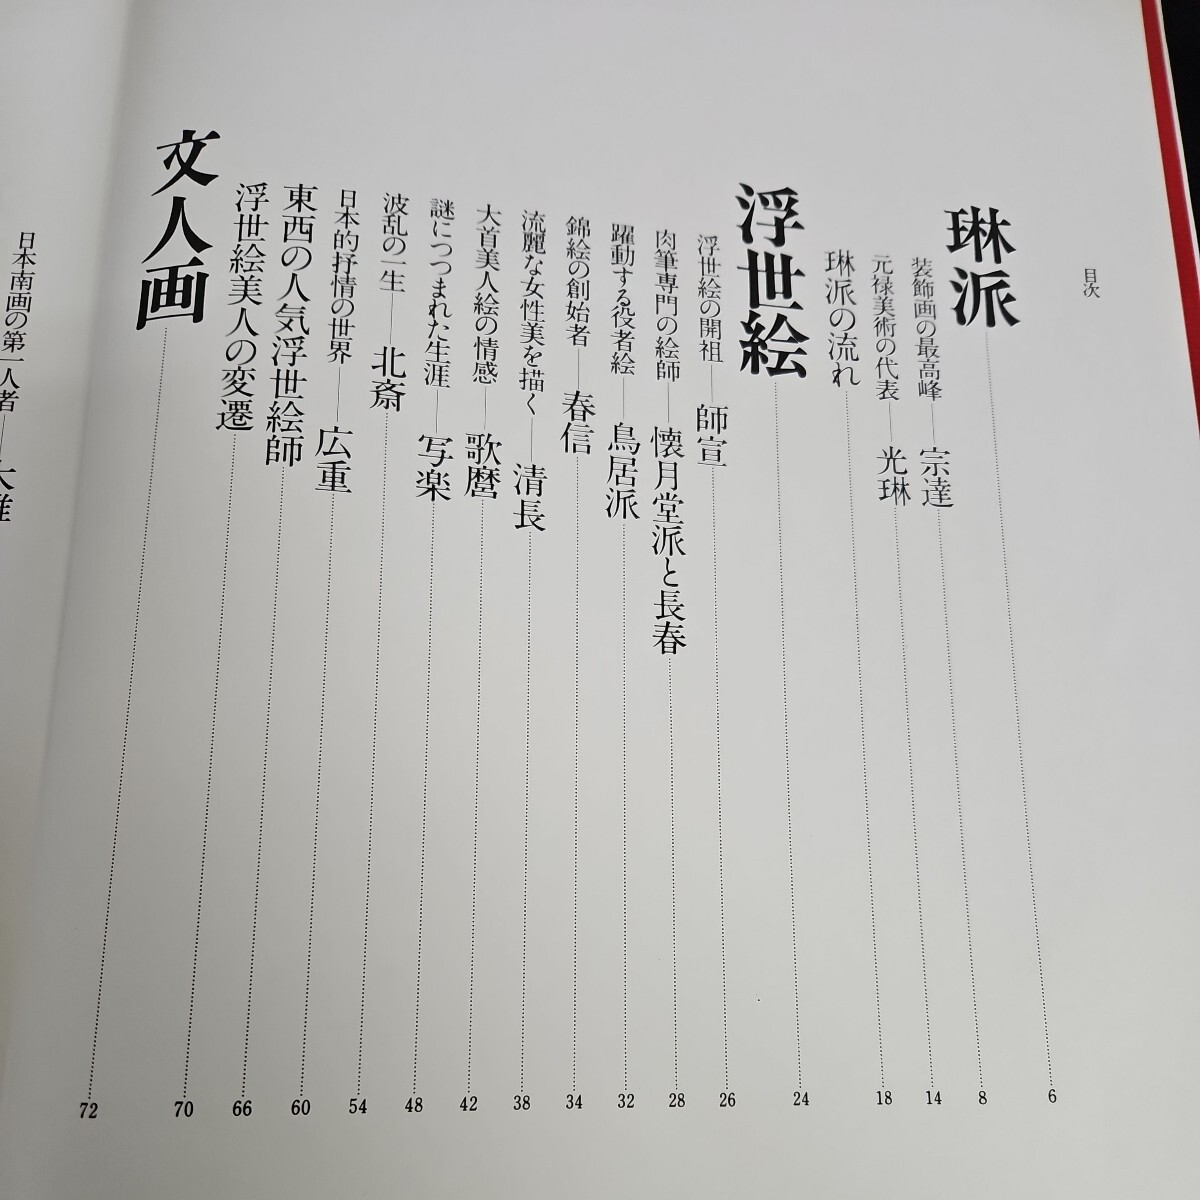 目次
琳派 6
装飾画の最高峰――宗達 8
元禄美術の代表――光琳 14
琳派の流れ 18
浮世絵 24
浮世絵の開祖――師宣 26
肉筆専門の絵師――懐月堂派と長春 28
躍動する役者絵――鳥居派 32
錦絵の創始者――春信 34
流麗な女性美を描く――清長 38
大首美人絵の情感――歌麿 42
謎につつまれた生涯――写楽 48
波乱の一生――北斎 54
日本的抒情の世界――広重 60
東西の人気浮世絵師 66
浮世絵美人の変遷 70
文人画 72
日本南画の第一人者――大雅